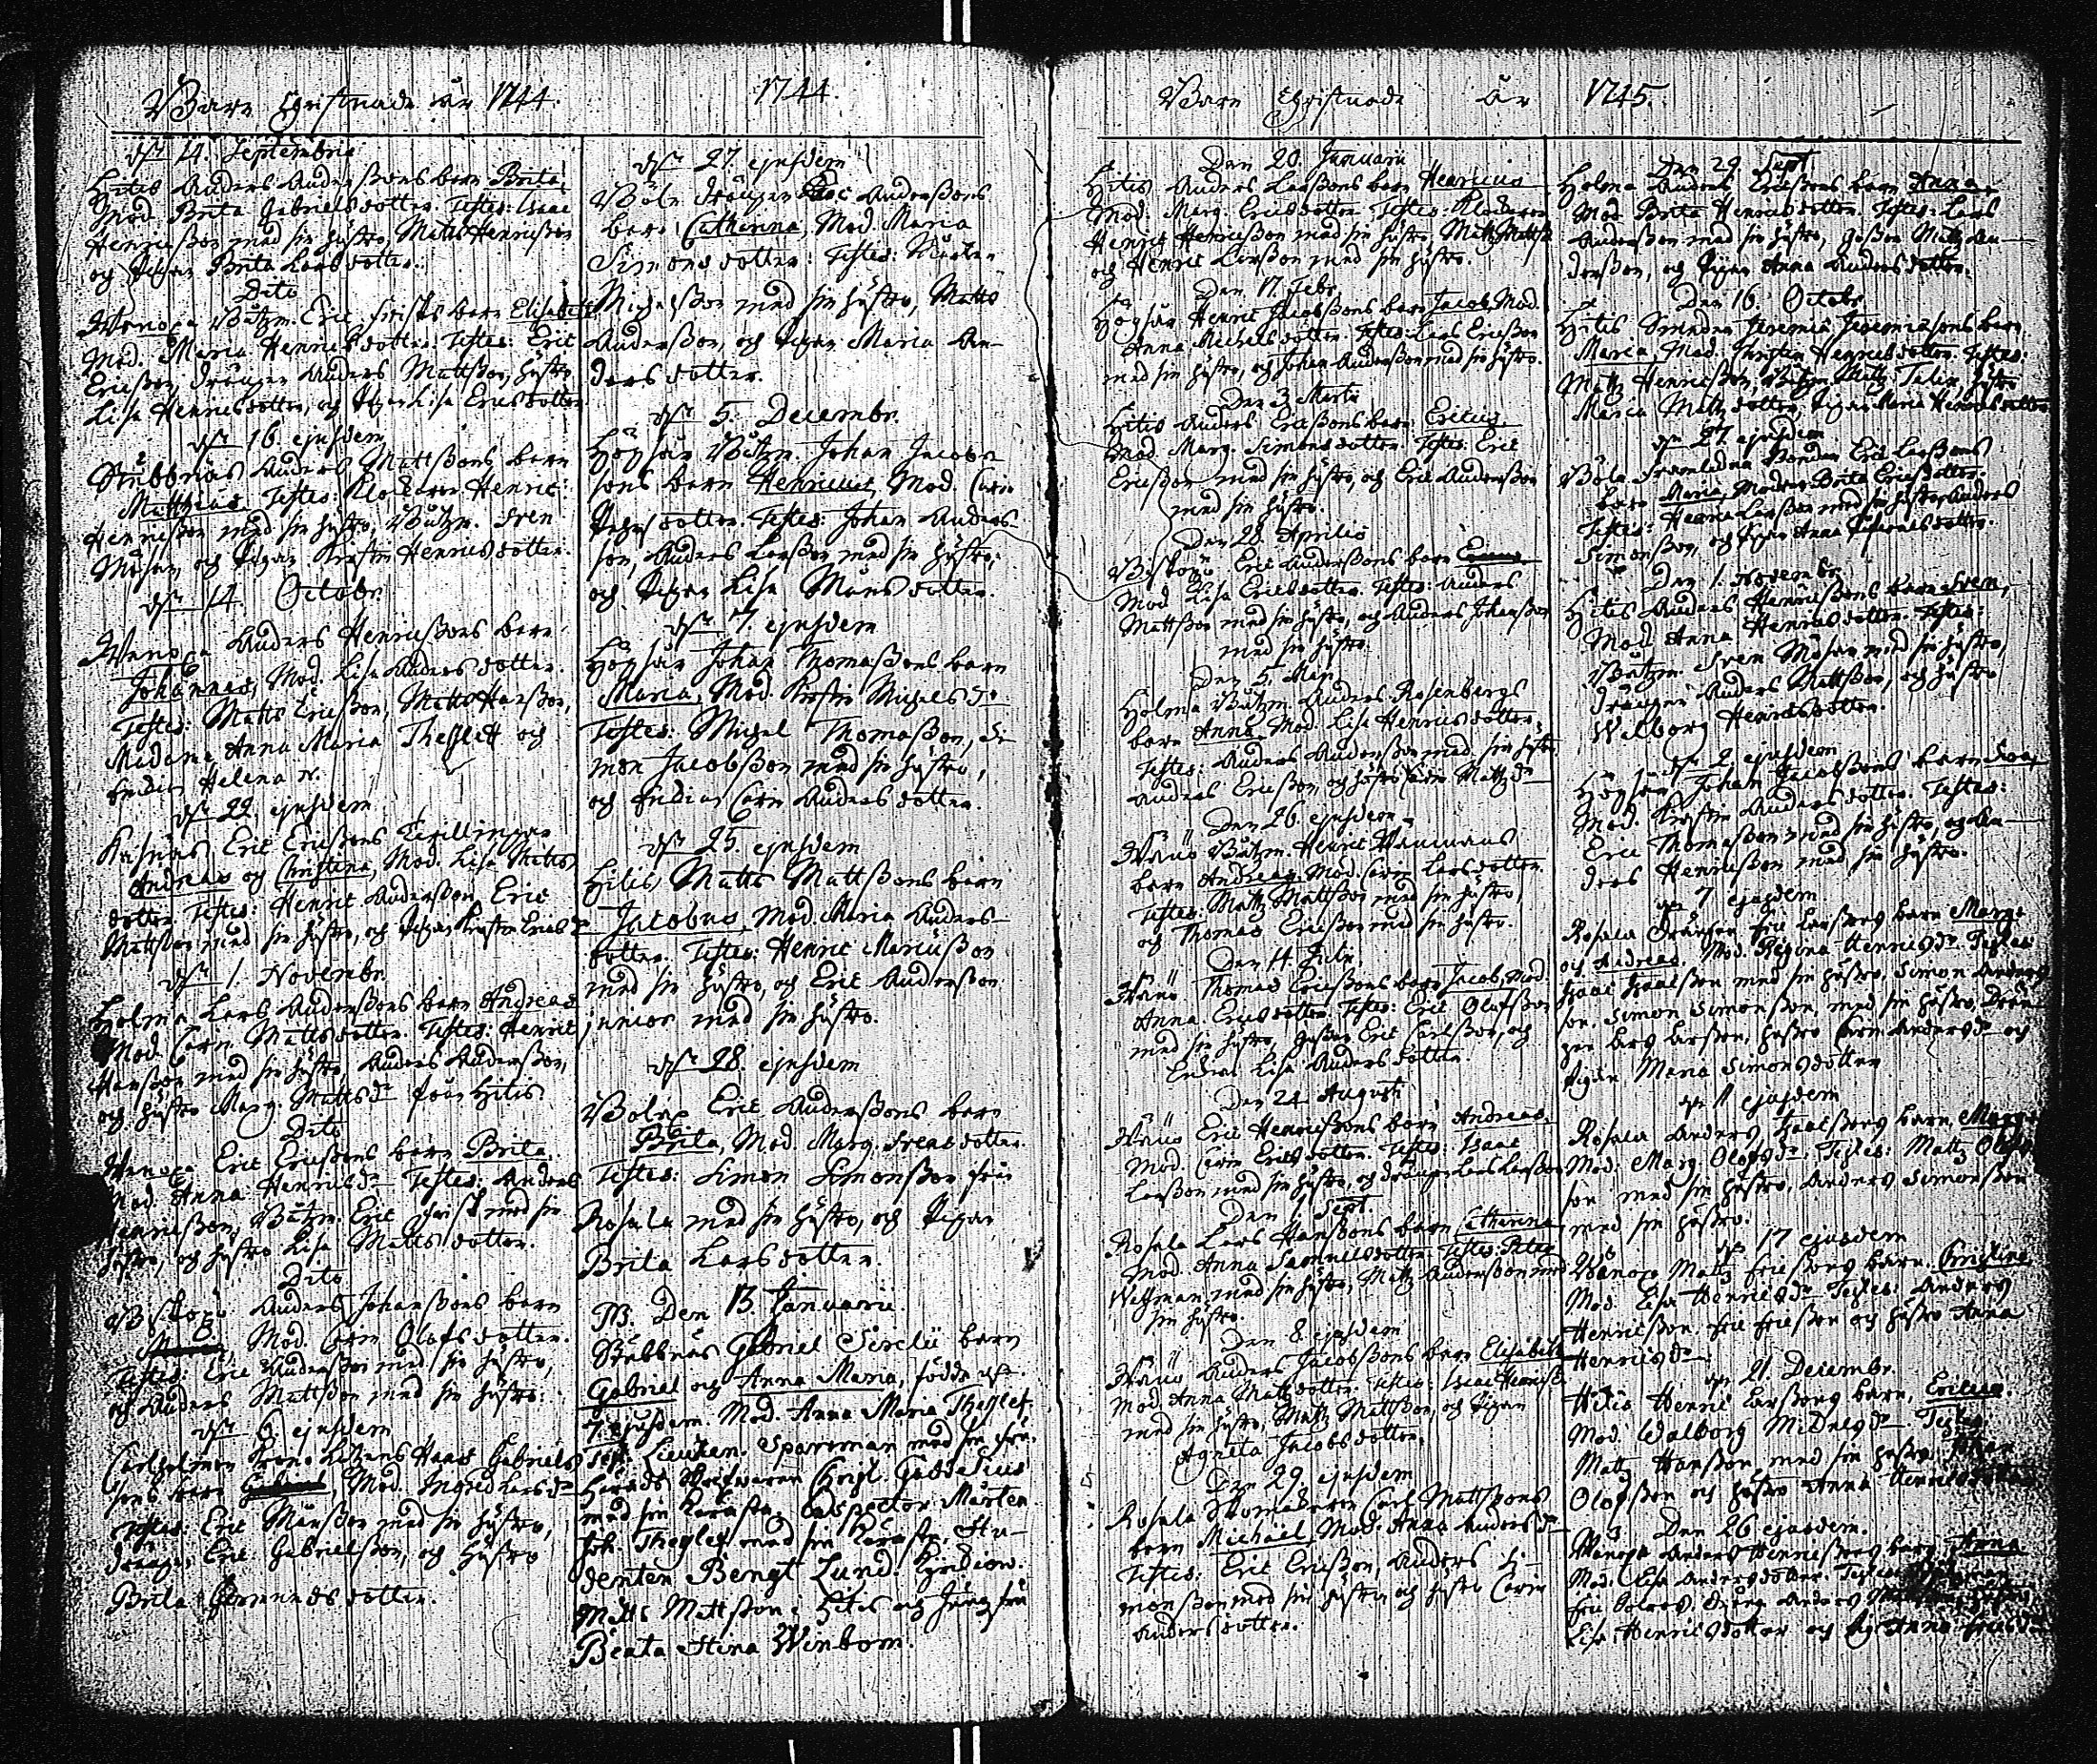 Barn Christnade år 1744.
dn 14. Septembris
Hitis Anders Anderßons barn Brita
Mod. Brita Gabrielsdotter. Testes: Isaac
Henricßon med sin hustro, Matts Henricßon
och Pigan Brita Larsdotter.
Dito
Wenoxa Båtzm. Eric Frisks barn Elisabeth
Mod. Maria Henricsdotter. Testes: Eric
Ericßon, Drängen Anders Mattßon, hustro
Lisa Henricsdotter, och Pigan Lisa Ericsdotter
dn 16. ejusdem
Stubbnäs Anders Mattßons barn
Matthias. Testes: Klockaren Henric
Henricßon med sin hustro, Båtzm. Sven
Måsan, och Pigan Kirstin Henricsdotter.
dn 14. Octobr.
Wenoxa Anders Henricßons barn
Johannes, Mod. Lisa Andersdotter.
Testes: Matts Ericßon, Matts Hansßon,
Madame Anna Maria Thesleff och
Helena N.
dn 22. ejusdem
Kasnäs Eric Ericßons Twillingar
Andreas och Christina, Mod. Lisa Matts
dotter. Testes: Henric Anderßon, Eric
Mattßon med sin hustro, och Pigan Kirstin Ericsdr
dn 1. Novembr.
Holma Lars Anderßons barn Andreas
Mod. Carin Mattsdotter. Testes: Henric
Hansßon med sin hustro, Anders Anderßon,
och hustro Marg. Mattsdr från Hitis
Dito
Wenoxa Eric Ericßons barn Brita.
Mod. Anna Henricsdr Testes: Anders
Henricßon, Båtzm. Eric Frisk med sin
hustro, och hustro Lisa Mattsdotter.
Dito
Biskopö Anders Johanßons barn
Mod. Carin Olofsdotter.
Testes: Eric Anderßon med sin hustro,
och Anders Mattßon med sin hustro.
dn 6. ejusdem
Carlholmen Krono Lotzens Hans Gabriels
sons barn Gabriel, Mod. Ingrid Larsdr
Testes: Eric Månßon med sin hustro,
Drängen Eric Gabrielßon, och hustro
Brita dotter.
1744.
dn 27. ejusdem
Böle Drängen Eric Anderßons
barn Catharina, Mod. Maria
Simonsdotter. Testes: Mårten
Michelßon med sin hustro, Matts
Anderßon, och Pigan Maria An-
dersdotter.
dn 5. Decembr.
Högsår Båtzm. Johan Jacobs
sons barn Henricus, Mod. Carin
dotter. Testes: Johan Anders-
son, Anders Larßon med sin hustro,
och Pigan Lisa Månsdotter.
dn 7. ejusdem
Högsår Johan Thomaßons barn
Maria, Mod. Kirstin Michelsdr
Testes: Michel Thomaßon, Si-
mon Jacobßon med sin hustro,
och Enkian Carin Andersdotter.
dn 25. ejusdem
Hitis Matts Mattßons barn
Jacobus, Mod. Maria Anders-
dotter. Testes: Henric Mariußon
med sin hustro, och Eric Anderßon
junior med sin hustro.
dn 28. ejusdem
Böle Eric Anderßons barn
Brita, Mod. Marg. Svensdotter.
Testes: Simon Simonßon från
Rosala med sin hustro, och Pigan
Brita Larsdotter.
NB. Den 13. Januarii
Stubbnäs Gabriel Sirelii barn
Gabriel och Anna Maria, födda dn
7. ejusdem. Mod. Anna Maria Theslef.
Test. Lieuten. Sparrman med sin fru.
Härads Skrifvaren Christ. Gaddelius
med sin käresta, Inspector Mårten
Joh. Theslef med sin käresta, Stu-
denten Bengt Lund.
Matts Mattßon i Hitis och Jungfru
Beata Stina Winbom.
Barn Christnade år 1745.
Den 20. Januarii
Hitis Anders Larßons barn Henricus
Mod. Marg. Ericsdotter. Testes: Klockaren
Henric Henricßon med sin hustro, Matts Mattß.
och Henric Larßon med sin hustro.
Den 17. Febr.
Högsår Henric Jacobßons barn Jacob, Mod.
Anna Michelsdotter. Testes: Lars Ericßon
med sin hustro, och Johan Anderßon med sin hustro.
Den 3. Martii
Hitis Anders Ericßons barn Ericus.
Mod. Marg. Simonsdotter. Testes: Eric
Ericßon med sin hustro, och Eric Anderßon
med sin hustro.
Den 28. Aprilis
Biskopö Eric Anderßons barn
Mod. Lisa Ericsdotter. Testes: Anders
Mattßon med sin hustro, och Anders Johanßon
med sin hustro.
Den 5. Maji
Holma Båtzm. Anders Rosenbergs
barn Anna, Mod. Lisa Henricsdotter.
Testes: Anders Anderßon med sin hustro
Anders Ericßon, och hustro Carin Mattsdr
Den 26. ejusdem
Wänö Båtzm. Henric Wänmans
barn Andreas, Mod. Carin Larsdotter.
Testes: Mattz Mattßon med sin hustro,
och Thomas Ericßon med sin hustro.
Den 14. Julii
Wänö Thomas Ericßons barn Jacob, Mod.
Anna Ericsdotter. Testes: Eric Olofßon
med sin hustro, Eric Carlßon, och
Enkian Lisa Andersdotter
Den 24. Augusti
Wänö Eric Henricßons barn Andreas.
Mod. Carin Ericsdotter. Testes: Isaac
Larßon med sin hustro, och Drängen Lars Larßon
Den 1. Sept.
Rosala Lars Hansßons barn Catharina
Mod. Anna Samuelsdotter. Testes: Peter
Wessman med sin hustro, Mattz Anderßon med
sin hustro.
Den 8. ejusdem
Wänö Anders Jacobßons barn Elisabeth
Mod. Anna Mattzdotter. Testes: Isaac Henricß.
med sin hustro, Mattz Mattßon, och Pigan
Agneta Jacobsdotter.
Den 29. ejusdem
Rosala Skomakaren Carl Mattßons
barn Michael, Mod. Anna Andersdr
Testes: Eric Ericßon, Anders Si-
monßon med sin hustro och hustro Carin
Andersdotter.
Den 29. Sept.
Holma Anders Ericßons barn Anna.
Mod. Brita Henricsdotter. Testes: Lars
Anderßon med sin hustro, Gossen Mattz An-
derßon, och Pigan Anna Andersdotter.
Den 16. Octobr.
Hitis Smeden Jeremia Jeremiæsons barn
Maria, Mod. Kirstin Henricsdotter. Testes:
Mattz Henricßon, Båtzm. Mattz Talin, hustro
Maria Mattzdotter, Pigan Maria Henricsdotter
dn 27. ejusdem
Böle Bonden Eric Larßons
barn Maria, Modren Brita Ericsdotter.
Testes: Henric Larßon med sin hustro, Anders
Simonßon, och Pigan Anna dotter.
Den 1. Novembr.
Hitis Anders Henricßons barn Sven,
Mod. Anna Henricsdotter. Testes:
Båtzm. Sven Måsan med sin hustro,
Drängen Anders Mattßon, och hustro
Walborg Henricsdotter.
dn 2. ejusdem
Högsår Johan Jacobßons barn
Mod. Kirstin Andersdotter. Testes:
Eric Thomaßon med sin hustro, och An-
ders Henricßon med sin hustro.
dn 7 ejusdem
Rosala Drängen Eric Larßons barn Marg.
och Andreas. Mod. Regina Henricsdr Testes
Isaac Isaacßon med sin hustro, Simon Anders
son, Simon Simonßon, med sin hustro, Drän-
gen Lars Larßon, hustro Carin Andersdr och
Pigan Maria Simonsdotter
dn 11 ejusdem
Rosala Anders Isaacßons barn, Marg.
Mod: Marg Olofsdr. Testes: Mattz Olofs
son med sin hustro, Anders Simonßon
med sin hustro.
dn 17 ejusdem
Wänoxa Matz Ericßons barn. Christina
Mod. Lisa Henricsdr Testes: Anders
Henricßon. Eric Ericßon och hustro Anna
Henricsdr
dn 21. Decembr.
Hitis Henric Larßons barn, Ericus.
Mod. Walborg Michelsdr Testes
Matz Hansßon med sin hustro, Johan
Olofßon och hustro Anna Henricsdotter
Den 26 ejusdem.
Wänoxa Anders Henricßons barn Anna
Mod. Lisa Andersdotter. Testes:
Eric Dräng Anders
Lisa Henricsdotter och Pig. Anna Ericsdr